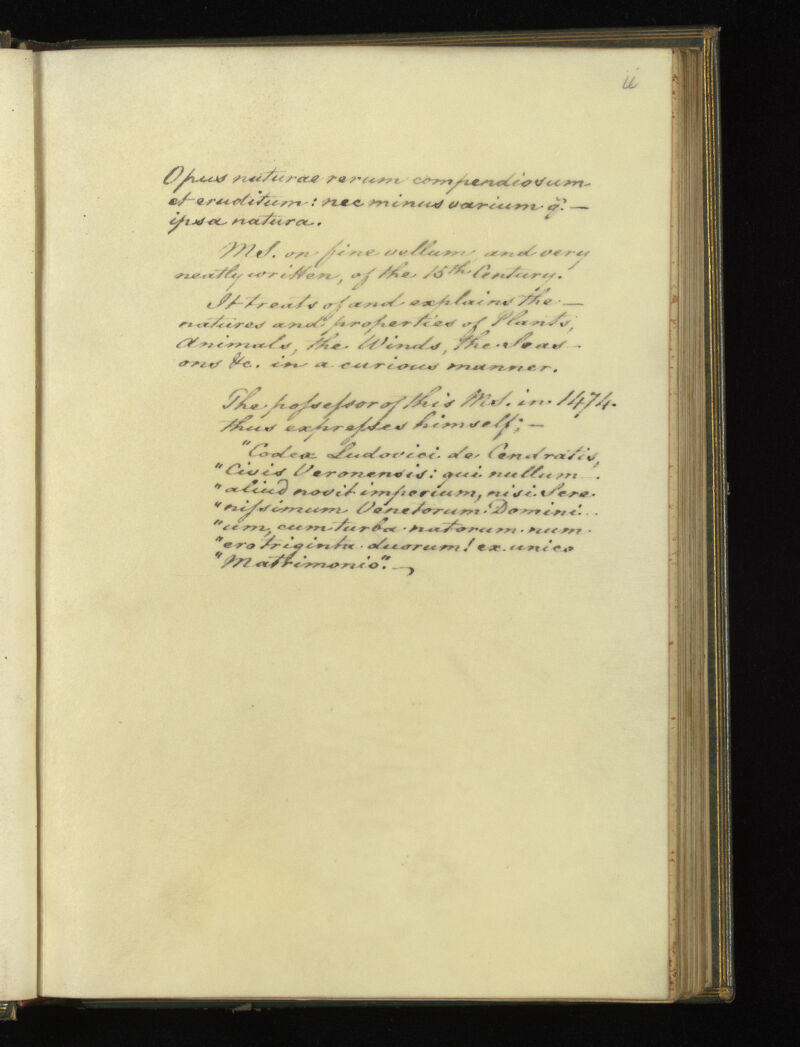 ii
Opus naturae rerum compendiosum
et eruditum: nec minus varium q̃. —
ipsa natura.
MS. on fine vellum, and very
neatly written, of the 15th Century.
It treats of and explains the —
natures and properties of Plants,
Animals, the Winds, the Seas-
ons &c. in a curious manner.
The poſseſsor of this MS. in 1474.
thus expreſses himself; —
"Codex Ludovici de Cendratis,
"Civis Veronensis: qui nullum
"aliud novit imperium, nisi Sere-
"niſsimum Venetorum Domini-
"um, cum turba natorum num-
"ero triginta duorum! ex unico
"Matrimonio". —